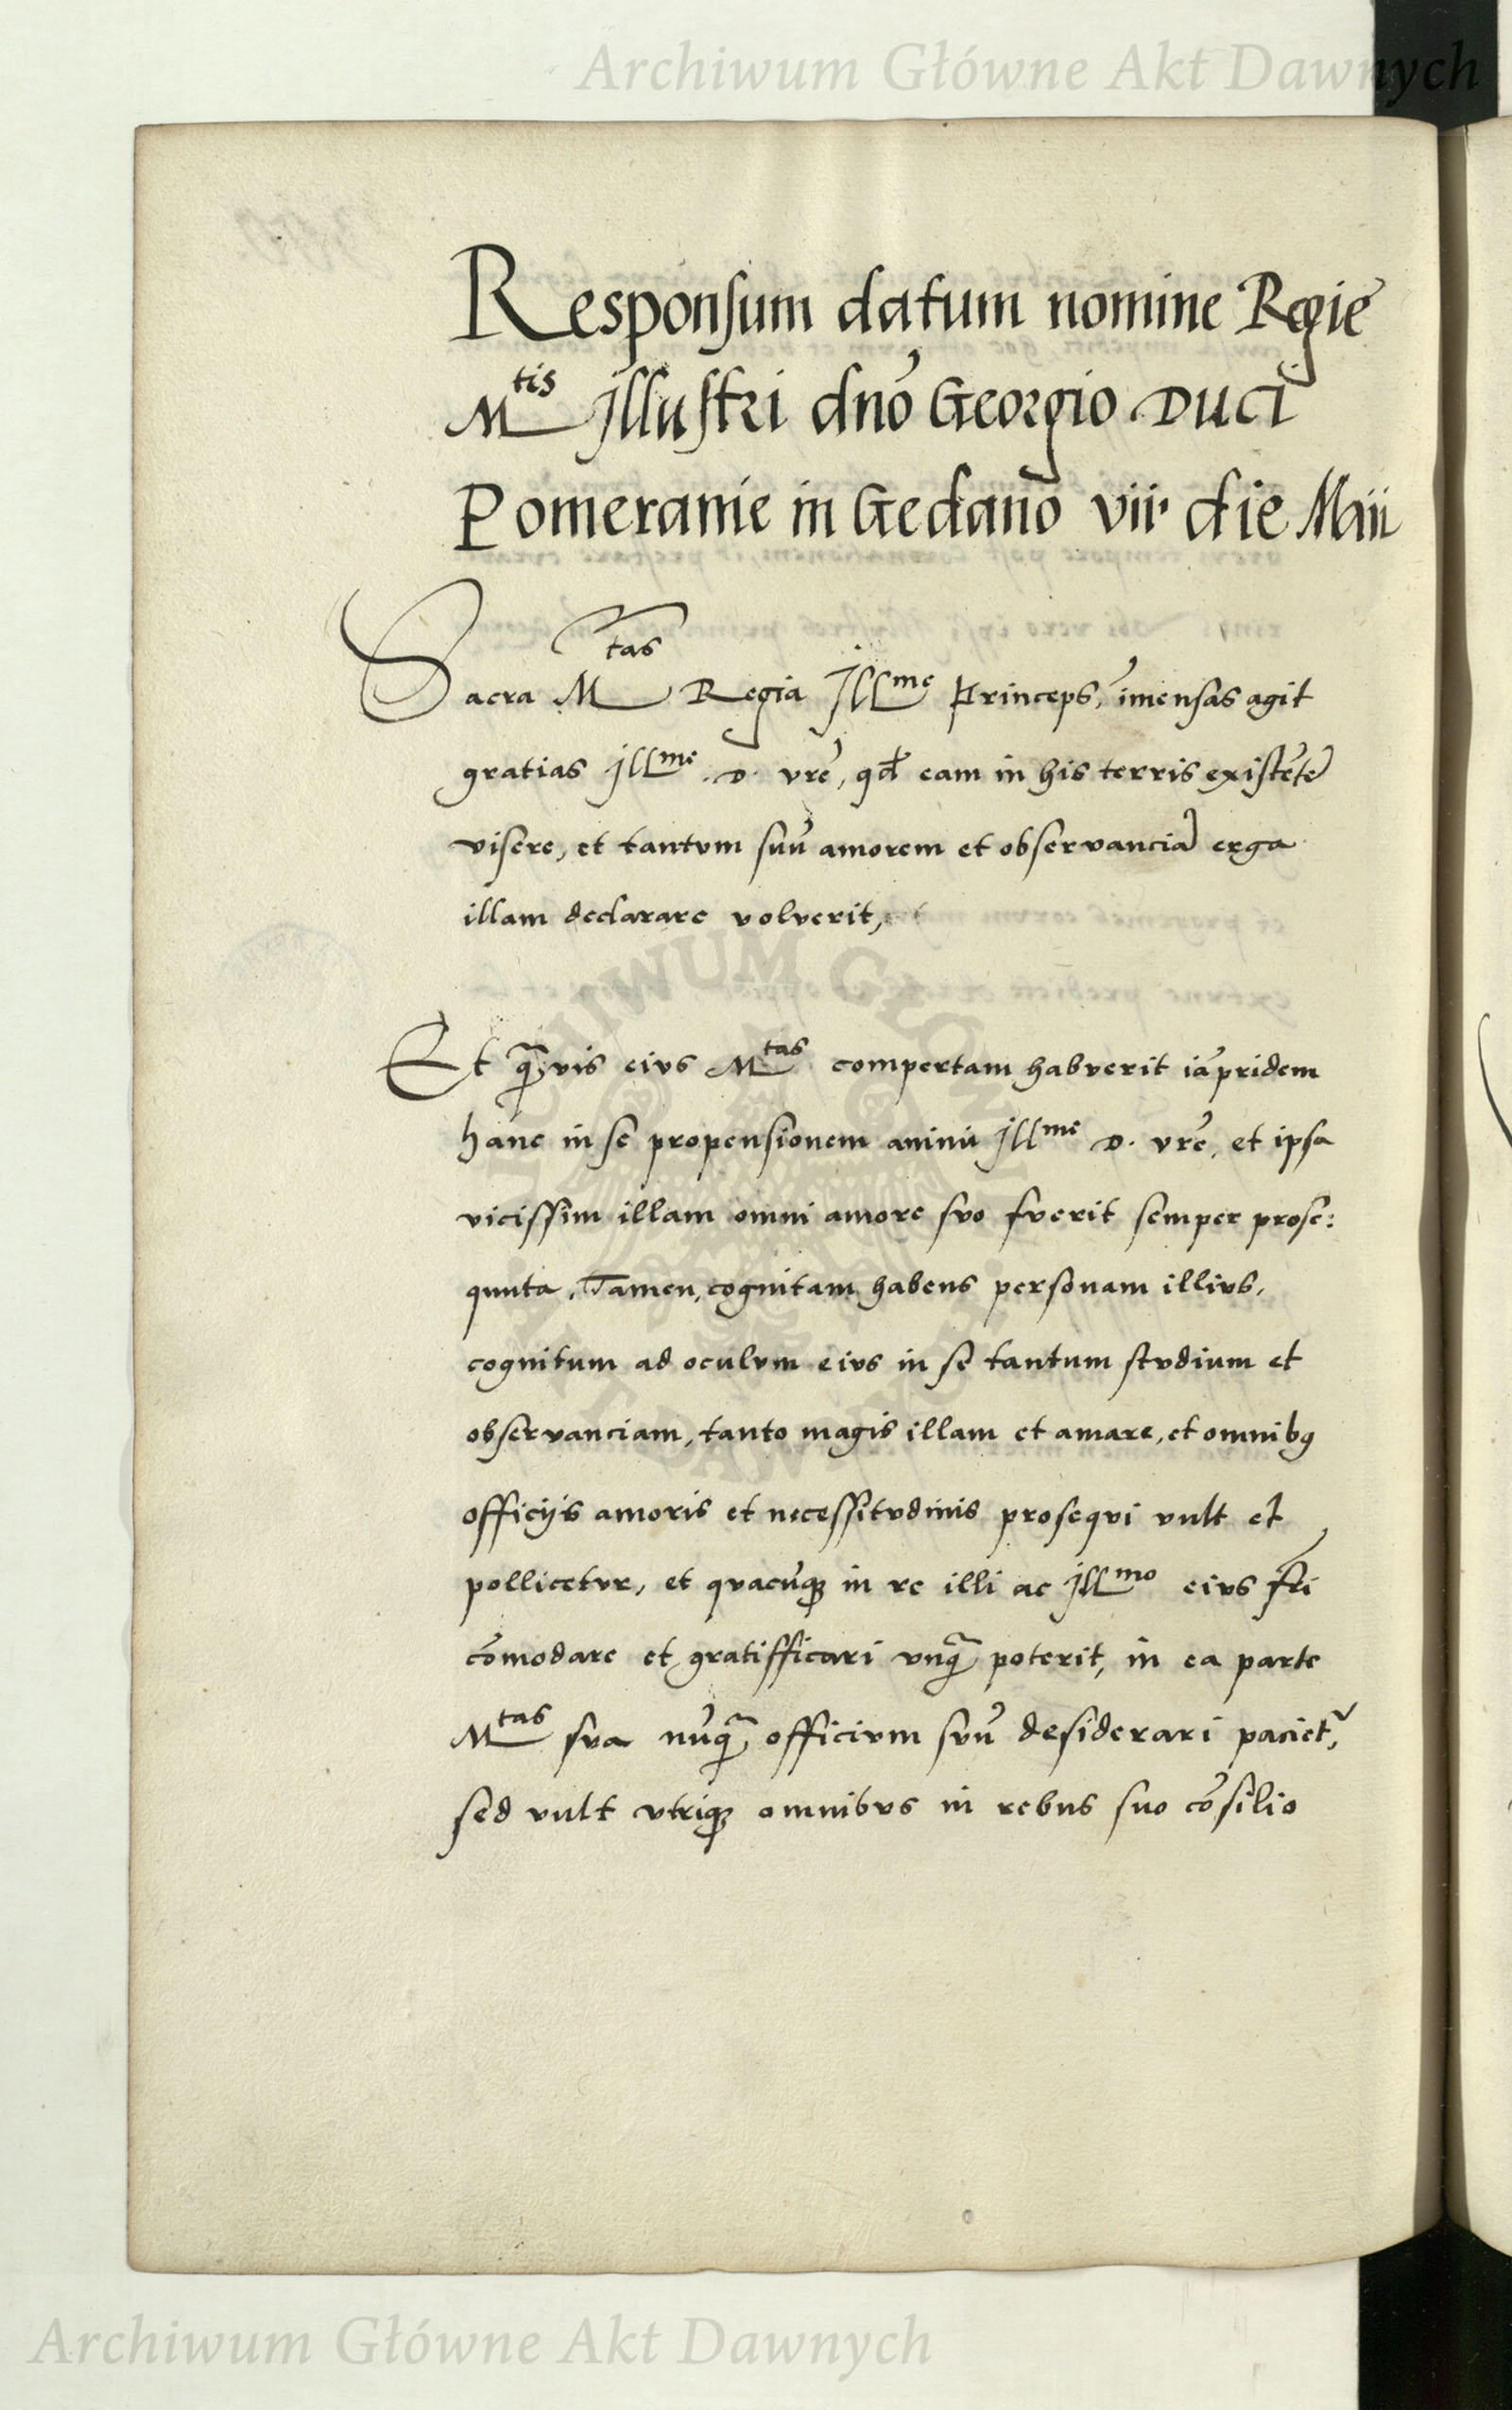 Archiwum Główne Akt Dawnych
Responsum datum nomine Regie
M^tis Illustri dnō Georgio DUCI
Pomeranie in Gedano vii die Maii
Sacra M^tas Regia Ill^me Princeps, īmensas agit
gratias Ill^me D. vrē, qđ eam in his terris existētē
visere, et tantvm suū amorem et observanciā erga
illam declarare volverit,
Et q̄vis eivs M^tas compertam habverit iā pridem
hanc in se propensionem animi Ill^me D. vrē, et ipsa
vicissim illam omni amore svo fverit semper prose:
quuta, Tamen, cognitam habens personam illivs,
cognitum ad ocvlvm eivs in se tantum stvdium et
observanciam, tanto magis illam et amare, et omnibꝰ
officijs amoris et necessitvdinis proseqvi vult et
pollicetvr, et qvacūqꝫ in re illi ac Ill^mo eivs fr̄i
cōmodare et gratifficari vnq̄ poterit, in ea parte
M^tas sva nūq̄ officivm svū desiderari pacietr̄,
sed vult vtriqꝫ omnibvs in rebus suo cōsilio
ARCHIWUM GŁÓWNE AKT DAWNYCH
Archiwum Główne Akt Dawnych